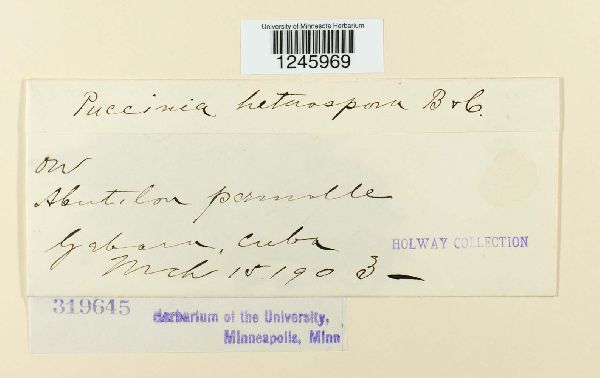 University of Minnesota Herbarium
1245969
Puccinia heterospora B & C.
on
Abutilon permolle
Gabara, Cuba
Mch 15 1903 —
HOLWAY COLLECTION
319645
Herbarium of the University,
Minneapolis, Minn